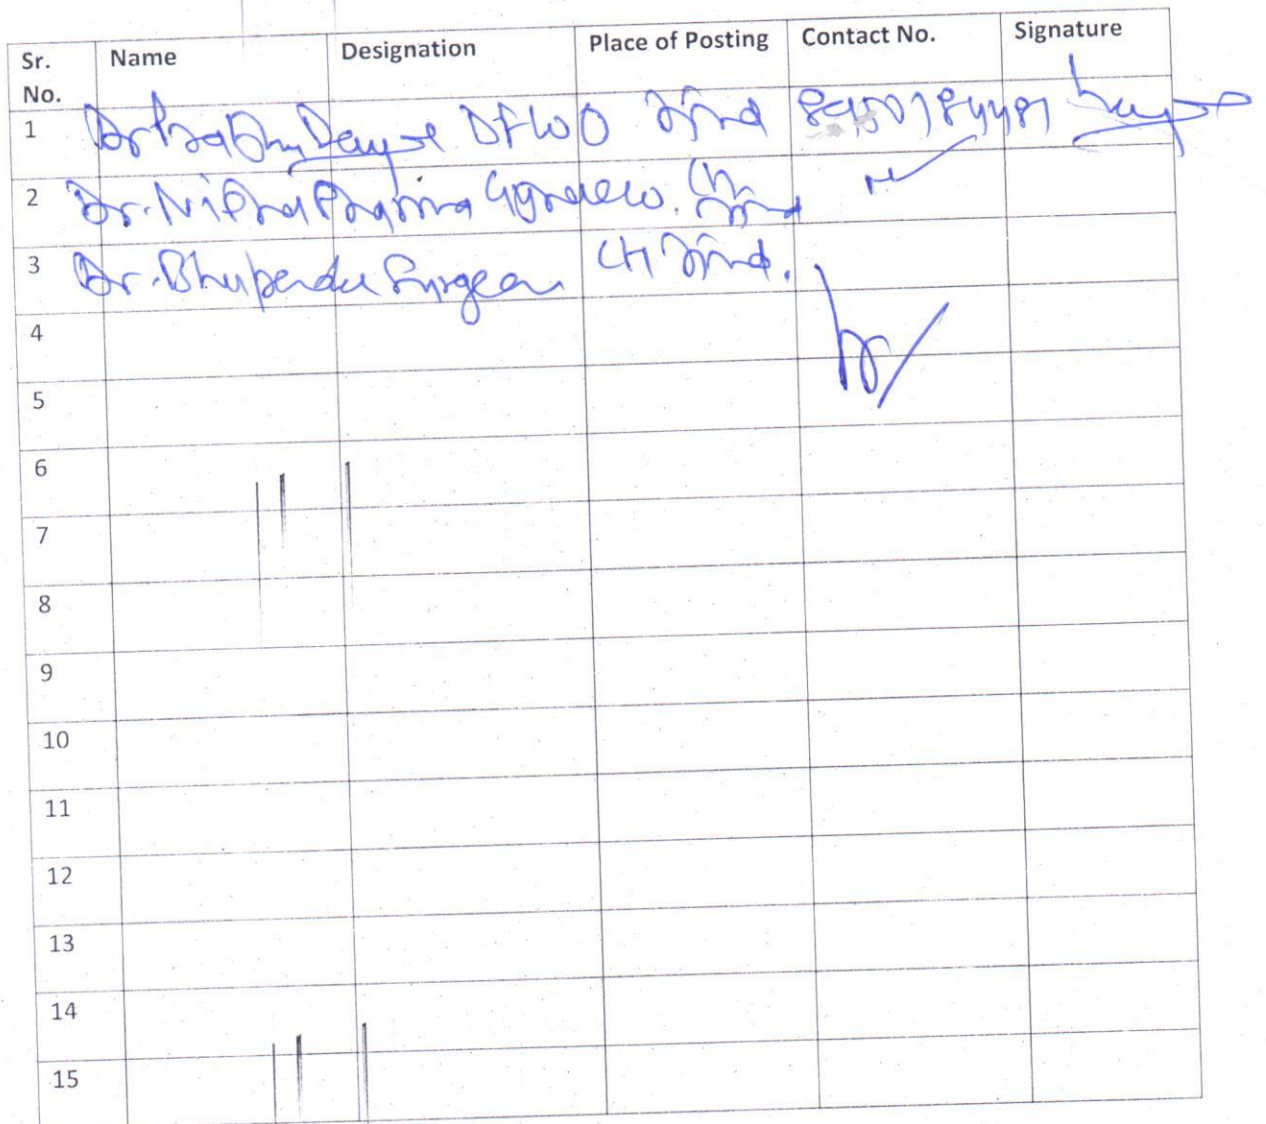 Sr. No. Name Designation Place of Posting Contact No. Signature
1 Dr Prabhu Dayal DFWO Jind
2 Dr. CH Jind
3 Dr. Bhupender Surgeon CH Jind.
4
5
6
7
8
9
10
11
12
13
14
15